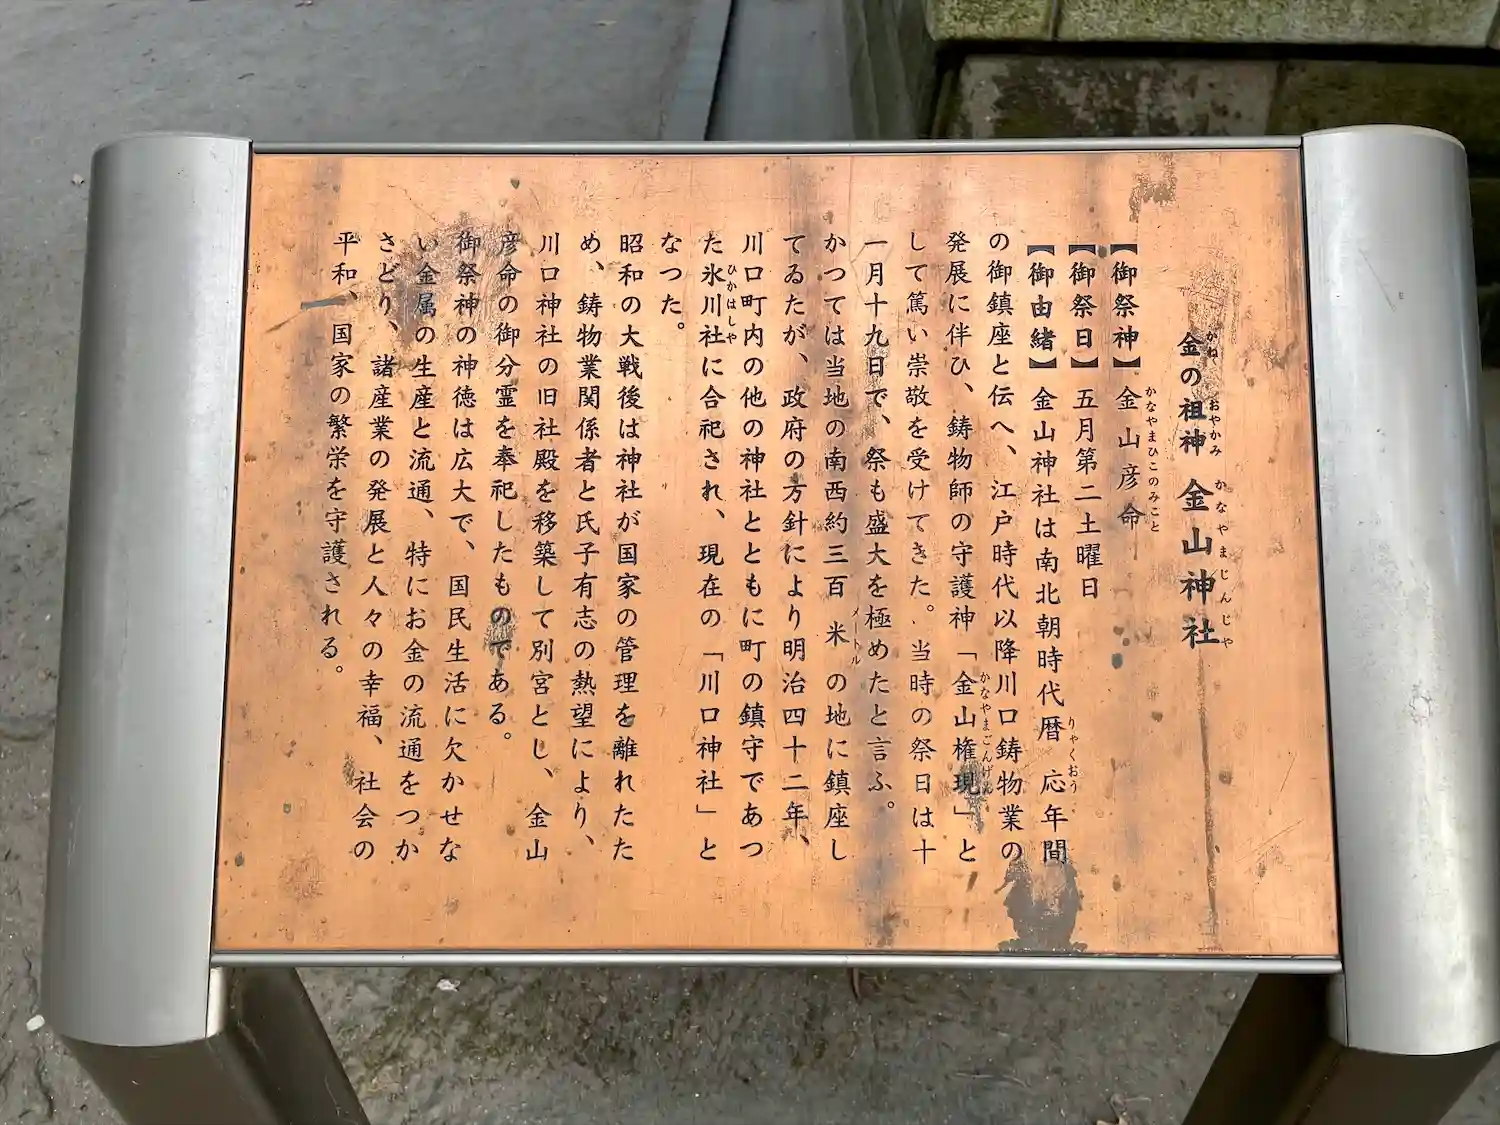 金の祖神 金山神社
かね おやかみ かなやまじんじや
【御祭神】金山彦命
かなやまひこのみこと
【御祭日】五月第二土曜日
【御由緒】金山神社は南北朝時代暦応年間
りゃくおう
の御鎮座と伝へ、江戸時代以降川口鋳物業の
発展に伴ひ、鋳物師の守護神「金山権現」と
かなやまごんげん
して篤い崇敬を受けてきた。当時の祭日は十
一月十九日で、祭も盛大を極めたと言ふ。
かつては当地の南西約三百米の地に鎮座し
メートル
てゐたが、政府の方針により明治四十二年、
川口町内の他の神社とともに町の鎮守であつ
た氷川社に合祀され、現在の「川口神社」と
ひかはしや
なつた。
昭和の大戦後は神社が国家の管理を離れたた
め、鋳物業関係者と氏子有志の熱望により、
川口神社の旧社殿を移築して別宮とし、金山
彦命の御分霊を奉祀したものである。
御祭神の神徳は広大で、国民生活に欠かせな
い金属の生産と流通、特にお金の流通をつか
さどり、諸産業の発展と人々の幸福、社会の
平和、国家の繁栄を守護される。